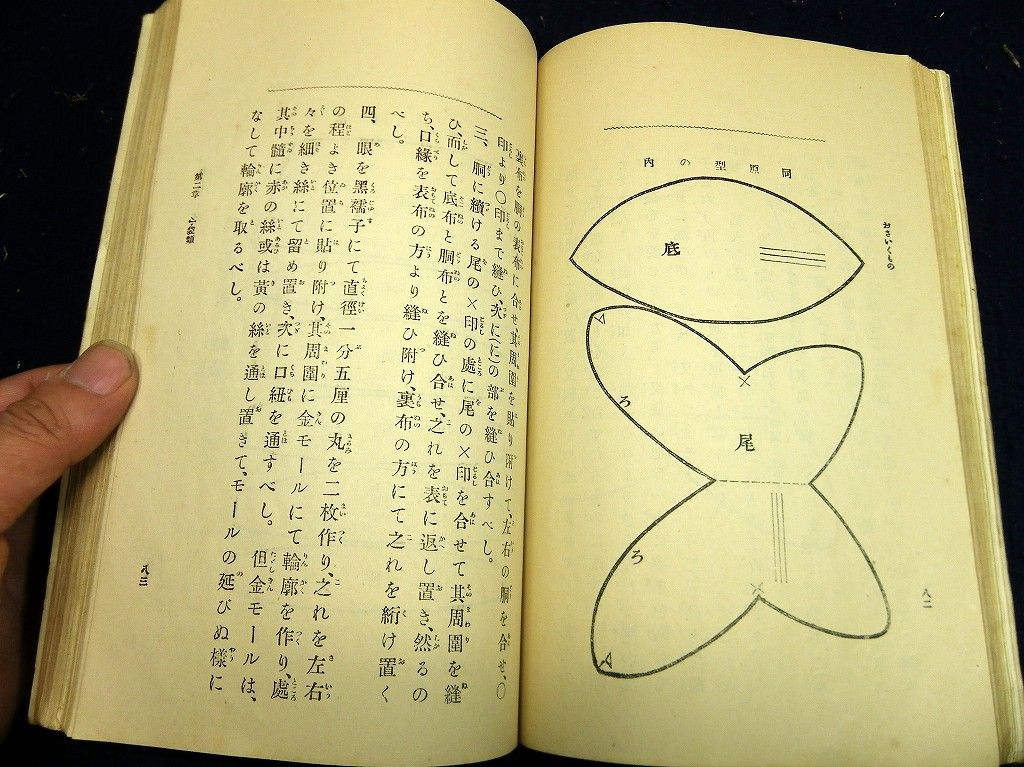 おさいくもの
同原型の内
底
ろ
尾
ろ
八二
裏布を胴の表布に合せ、其周圍を貼り附けて、左右の胴を合せ、〇
印より〇印まで縫ひ、次に(に)の部を縫ひ合すべし。
三、胴に續ける尾の×印の處に尾の×印を合せて其周圍を縫
ひ、而して底布と胴布とを縫ひ合せ、之れを表に返し置き、然るの
ち、口緣を表布の方より縫ひ附け、裏布の方にて之れを絎け置く
べし。
四、眼を黑繻子にて直徑一分五厘の丸を二枚作り、之れを左右
の程よき位置に貼り附け、其周圍に金モールにて輪廓を作り、處
々を細き絲にて留め置き、次に口紐を通すべし。但金モールは、
其中髓に赤の絲或は黃の絲を通し置きて、モールの延びぬ樣に
なして輪廓を取るべし。
第二章
八三